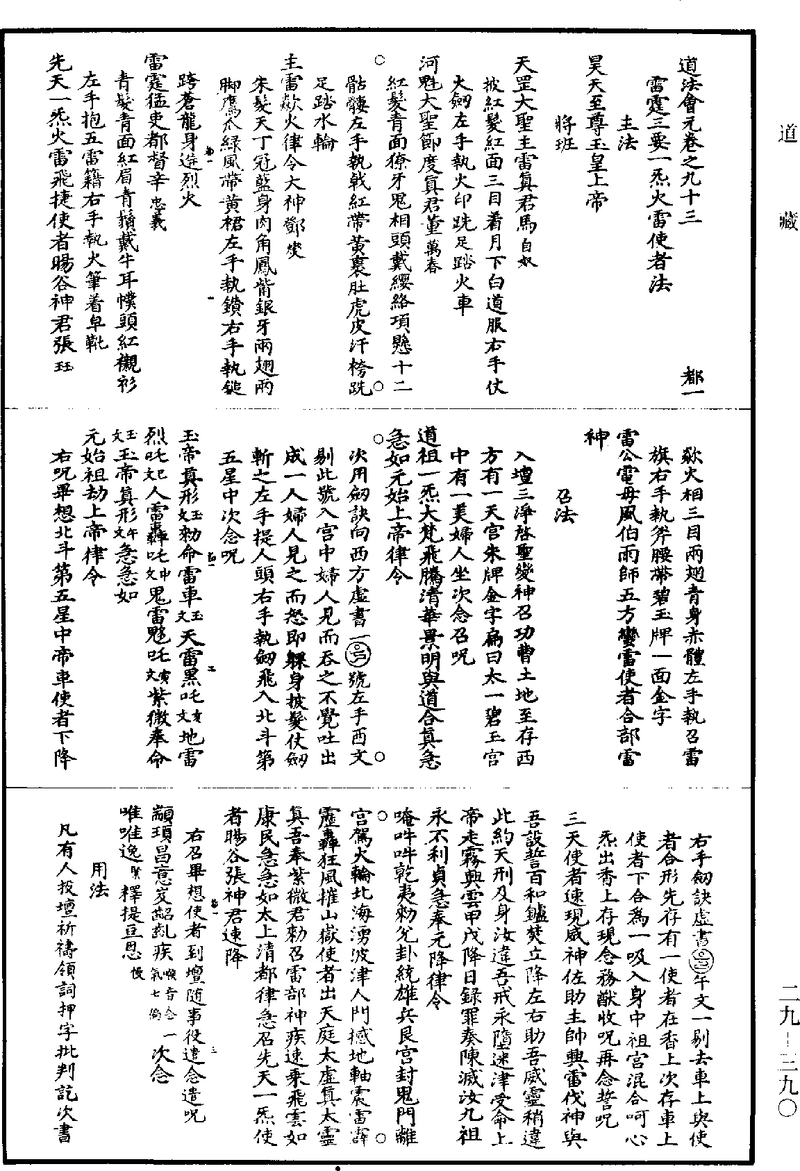 道藏
道法會元卷之九十三　都一
雷霆三要一炁火雷使者法
主法
昊天至尊玉皇上帝
將班
天罡大聖主雷眞君馬自奴
披紅髮紅面三目着月下白道服右手仗
火劒左手執火印跣足踏火車
河魁大聖節度眞君董萬春
紅髮青面獠牙鬼相頭戴纓絡項懸十二
骷髏左手執戟紅帶黃裹肚虎皮汗袴跣
足踏水輪
主雷歘火律令大神鄧燮
朱髮天丁冠藍身肉角鳳觜銀牙兩翅兩
脚鷹爪綠風帶黃裙左手執鑽右手執鎚
跨蒼龍身遶烈火
雷霆猛吏都督辛忠義
青髮青面紅眉青鬚戴牛耳幞頭紅襯衫
左手抱五雷籍右手執火筆着皁靴
先天一炁火雷飛捷使者暘谷神君張珏
歘火相三目兩翅青身赤體左手執召雷
旗右手執斧腰帶碧玉牌一面金字
雷公電母風伯雨師五方蠻雷使者合部雷
神
召法
入壇三淨啓聖變神召功曹土地至存西
方有一天宮朱牌金字扁曰太一碧玉宮
中有一美婦人坐次念召呪
道祖一炁大梵飛騰清華景明與道合眞急
急如元始上帝律令
次用劒訣向西方虛書一號左手酉文
剔此號入宮中婦人見而吞之不覺吐出
成一人婦人見之而怒即躶身披髮仗劒
斬之左手提人頭右手執劒飛入北斗第
五星中次念呪
玉帝眞形玉文勑命雷車玉文天雷黑吒亥文地雷
烈吒巳文人雷轟吒申文鬼雷魒吒寅文紫微奉命
玉文玉帝眞形午文急急如
元始祖劫上帝律令
右呪畢想北斗第五星中帝車使者下降
右手劒訣虛書午文一剔去車上與使
者合形先存有一使者在香上次存車上
使者下合為一吸入身中祖宮混合呵心
炁出香上存現念務猷收呪再念誓呪
三天使者速現威神佐助主帥興雷伐神與
吾設誓百和鑪焚立降左右助吾威靈稍違
此約天刑及身汝違吾戒永墮迷津受命上
帝走霧興雲甲戌降日錄罪奏陳滅汝九祖
永不利貞急奉元降律令
唵吽吽乾夷勑兊卦統雄兵艮宮封鬼門離
宮駕火輪北海湧波津人門撼地軸震雷霹
靂轟狂風摧山嶽使者出天庭太虛眞太靈
眞吾奉紫微君勑召雷部神疾速乘飛雲如
康民急急如太上清都律急召先天一炁使
者暘谷張神君速降
右召畢想使者到壇隨事役遣念遣呪
顓頊昌意岌齠亂疾喚音念一氣七徧次念
唯唯逸釋提亘恩
用法
凡有人投壇祈禱領詞押字批判訖次書
二九－三九〇